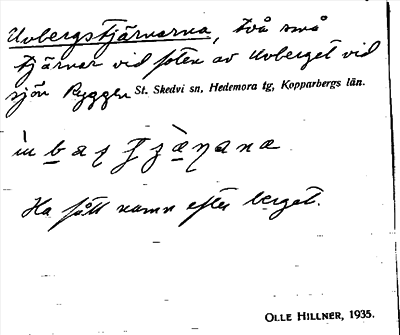 Uvbergstjärnarna, två små
tjärnar vid foten av Uvberget vid
sjön Ryggen St. Skedvi sn, Hedemora tg, Kopparbergs län.
Ha fått namn efter berget.
OLLE HILLNER, 1935.